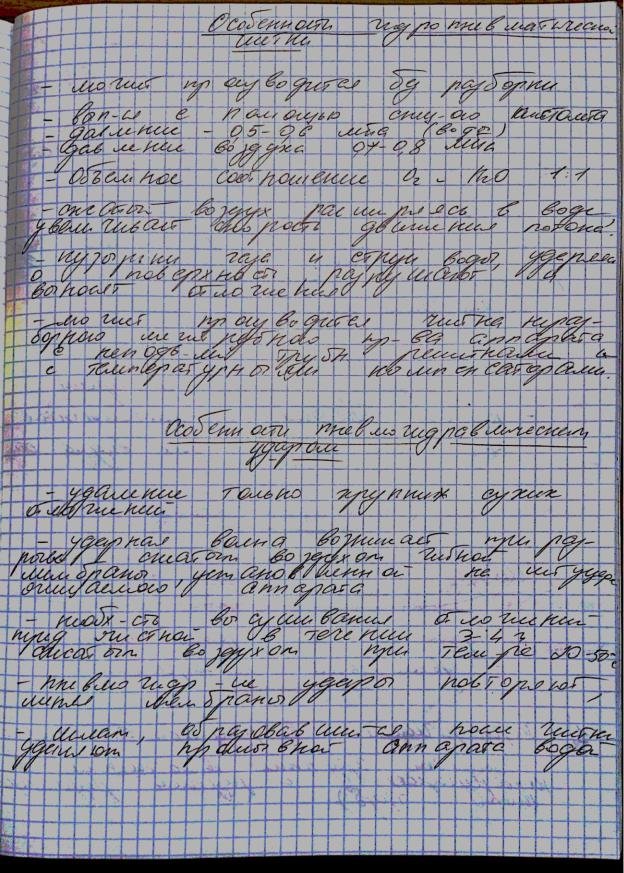 Особенности гидропневматическая
чистки
- может производится без разборки
- вып-ся с помощью спец-ого пистолета
- давление - 0,5-0,6 мПа (воды)
- давление воздуха 0,7-0,8 МПа
- Объемное соотношение O₂ - H₂O 1:1
- сжатый воздух расширяясь в воде,
увеличивает скорость движения потока.
- пузырьки газа и струи воды, ударяясь
о поверхность разрушают и
выносят отложения
- может производится чистка нераз-
борного межтрубного пр-ва аппарата
с неподв-ми трубн решетками и
с температурными компенсаторами.
Особенности пневмогидравлическем
ударом
- удаление только хрупких сухих
отложений
- ударная волна возникает при раз-
рыве сжатым воздухом гибкой
мембраны, установленной на штуцере
очищаемого аппарата
- необх-сть высушивания отложений
пред чисткой в течении 3-4 ч
сжатым воздухом при темп-ре 20-50°c
- пневмогидр-ие удары повторяют,
меняя мембраны
- шлам, образовавшийся после чистки
удаляют промывкой аппарата водой